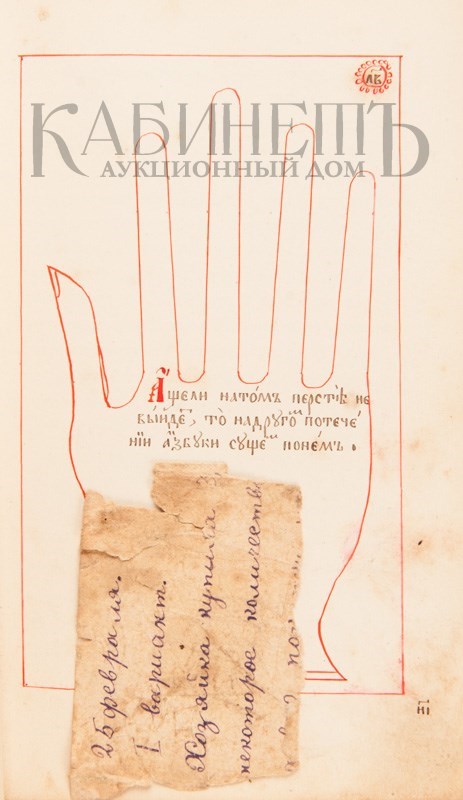 л҃в
КАБИНЕТЪ
АУКЦИОННЫЙ ДОМ
А҆щели нато́мъ перстѣ не
вы́йдеⷮ, то̀ надруго́ⷨ потече́
нїи а҆́збуки су́щеⷨ поне́мъ .
25 февраля.
I вариант.
Хозяйка купила 3
некоторое количеств
н҃і